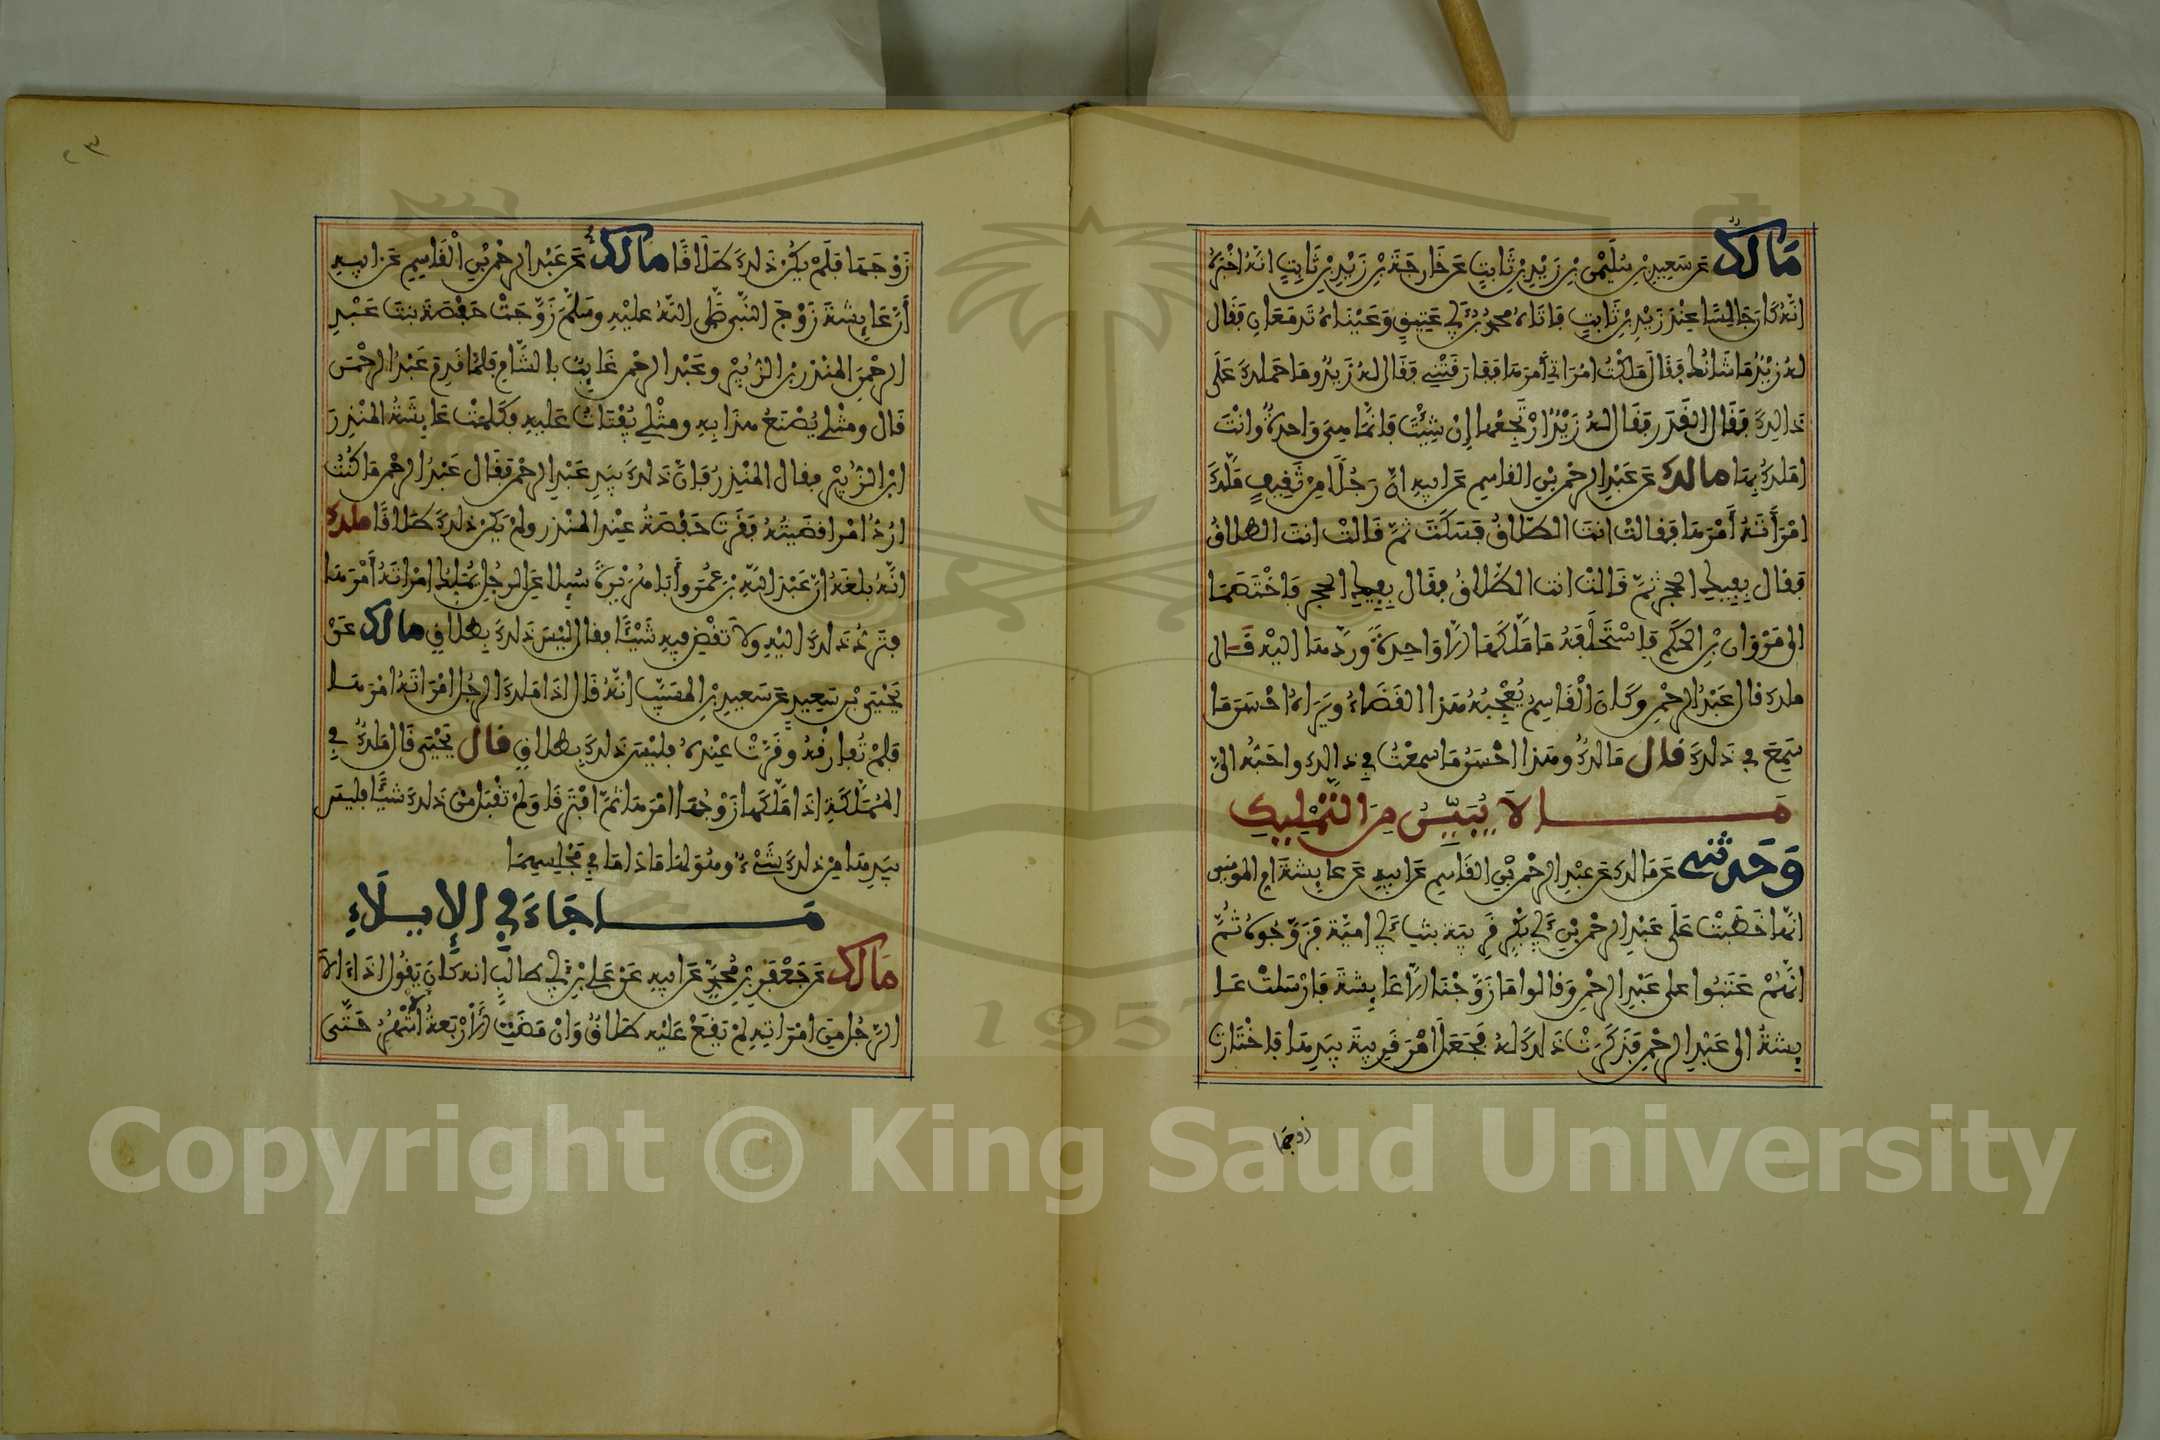 مالك عن سعيد بن سليمن بن زيد بن ثابت عن خارجة بن زيد بن ثابت انه اخبره
انه كان جالسا عند زيد بن ثابت فاتاه محمد بن أبي عتيق وعيناه تدمعان فقال
له زيد ما شانك فقال ملكت امراتي أمرها ففارقتني فقال له زيد وما حملك على
ذالك فقال القدر فقال له زيد ارتجعها إن شئت فانما هي واحدة وانت
املك بها مالك عن عبد الرحمن بن القاسم عن ابيه ان رجلا من ثقيف ملك
امرأته أمرها فقالت انت الطلاق فسكت ثم قالت انت الطلاق
فقال بفيك الحجر ثم قالت انت الطلاق فقال بفيك الحجر فاختصما
الى مروان بن الحكم فاستحلفه ما ملكها إلا واحدة وردها اليه قال
ملك قال عبد الرحمن وكان القاسم يعجبه هذا القضاء ويراه احسن ما
سمع في ذلك قال مالك وهذا احسن ما سمعت في ذالك واحبه الي
ما لا يبين من التمليك
وحدثني عن مالك عن عبد الرحمن بن القاسم عن ابيه عن عايشة ام المومنين
انها خطبت على عبد الرحمن بن أبي بكر قريبة بنت أبي امية فزوجوه ثم
انهم عتبوا على عبد الرحمن وقالوا ما زوجنا إلا عايشة فارسلت عا
يشة الى عبد الرحمن فذكرت ذلك له فجعل امر قريبة بيدها فاختارت
زوجها
٢٣
زوجها فلم يكن ذلك طلاقا مالك عن عبد الرحمن بن القاسم عن ابيه
أن عايشة زوج النبي صلى الله عليه وسلم زوجت حفصة بنت عبد
الرحمن المنذر بن الزبير وعبد الرحمن غايب بالشام فلما قدم عبد الرحمن
قال ومثلي يصنع هذا به ومثلي يفتات عليه فكلمت عايشة المنذر
ابن الزبير فقال المنذر فان ذلك بيد عبد الرحمن فقال عبد الرحمن ما كنت
ارد امرا قضيته فقرت حفصة عند المنذر ولم يكن ذلك طلاقا ملك
انه بلغه ان عبد الله بن عمر وأبا هريرة سيلا عن الرجل يملك امراته أمرها
فترد ذلك اليه ولا تقض فيه شيئا فقالا ليس ذلك بطلاق مالك عن
يحيى بن سعيد عن سعيد بن المسيب انه قال اذا ملك الرجل امراته امرها
فلم تفارقه وقرت عنده فليس ذلك بطلاق قال يحيى قال ملك في
المملكة اذا ملكها زوجها امرها ثم افترقا ولم تقبل من ذلك شيئا فليس
بيدها من ذلك شيء وهو لها ما داما في مجلسهما
ما جاء في الإيلاء
مالك عن جعفر بن محمد عن ابيه عن علي بن أبي طالب انه كان يقول اذا ءالا
الرجل من امراته لم يقع عليه طلاق وان مضت الأربعة الأشهر حتى
Copyright © King Saud University
1957